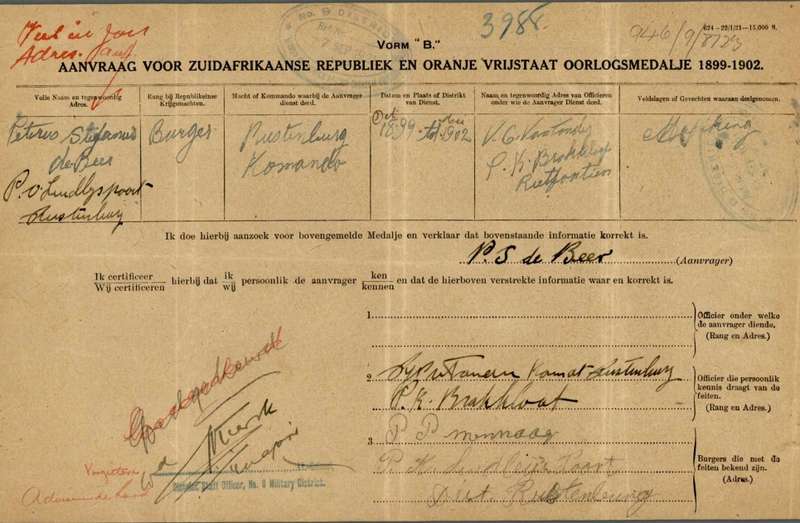 3985.
946/9/8723
G24—22/1/21—15,000 B.
VORM "B."
AANVRAAG VOOR ZUIDAFRIKAANSE REPUBLIEK EN ORANJE VRIJSTAAT OORLOGSMEDALJE 1899-1902.
Volle Naam en tegenwoordig Adres.
Rang bij Republikeinse Krijgsmachten.
Macht of Kommando waarbij de Aanvrager dienst deed.
Datum en Plaats of Distrikt van Dienst.
Naam en tegenwoordig Adres van Officieren onder wie de Aanvrager Dienst deed.
Veldslagen of Gevechten waaraan deelgenomen.
Petrus Stefanus
de Beer
P. v. Lindleyspoort
Rustenburg
Burger
Rustenburg
Komando
Oct 1899 1902
P. K. Brakkloof
Rietfontein
Mafeking
Ik doe hierbij aanzoek voor bovengemelde Medalje en verklaar dat bovenstaande informatie korrekt is.
P. S. de Beer (Aanvrager)
Ik certificeer
Wij certificeren
hierbij dat
ik
wij
persoonlik de aanvrager
ken
kennen
en dat de hierboven verstrekte informatie waar en korrekt is.
1
Officier onder welke
de aanvrager diende.
(Rang en Adres.)
2
Komdt Rustenburg
P. K. Brakkloof
Officier die persoonlik
kennis draagt van de
feiten.
(Rang en Adres.)
3
P. P.
P. K. Lindleys Poort
Dist. Rustenburg
Burgers die met de
feiten bekend zijn.
(Adres.)
Goedgekeurd
District Staff Officer, No. 9 Military District.